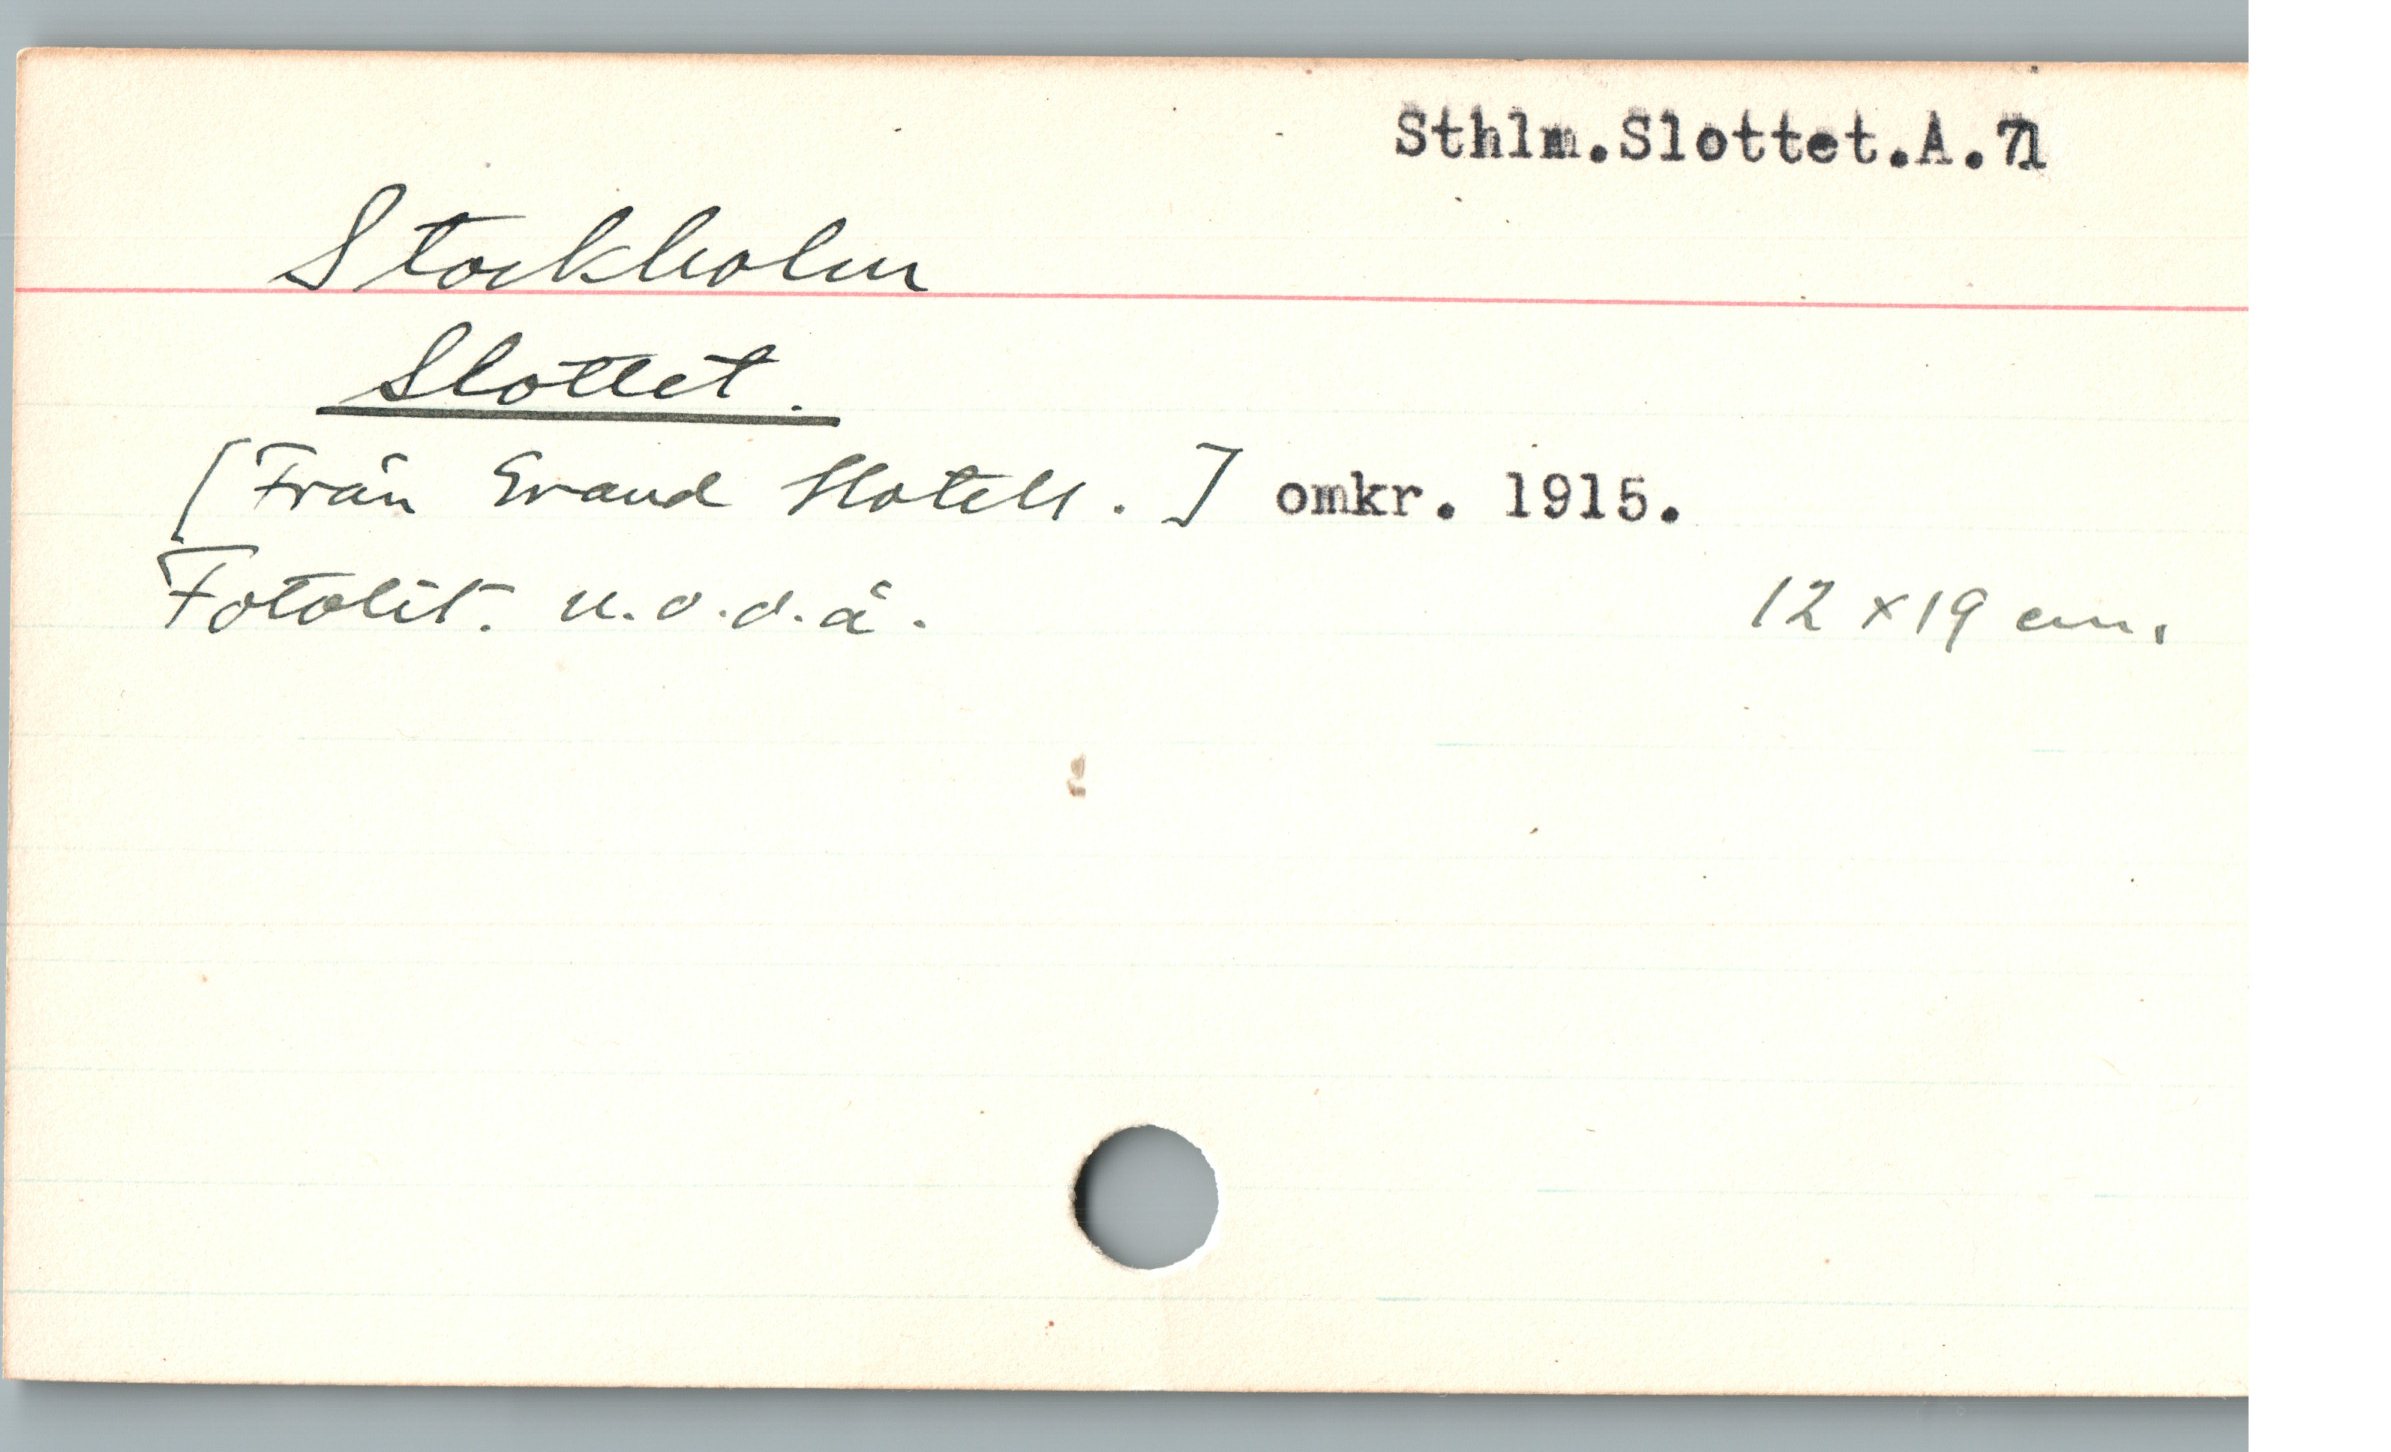 Sthlm.Slottet.A.71
Stockholm
Slottet.
[Från Grand Hotell.] omkr. 1915.
Fotolit. u.o.o.å. 12 x 19 cm.